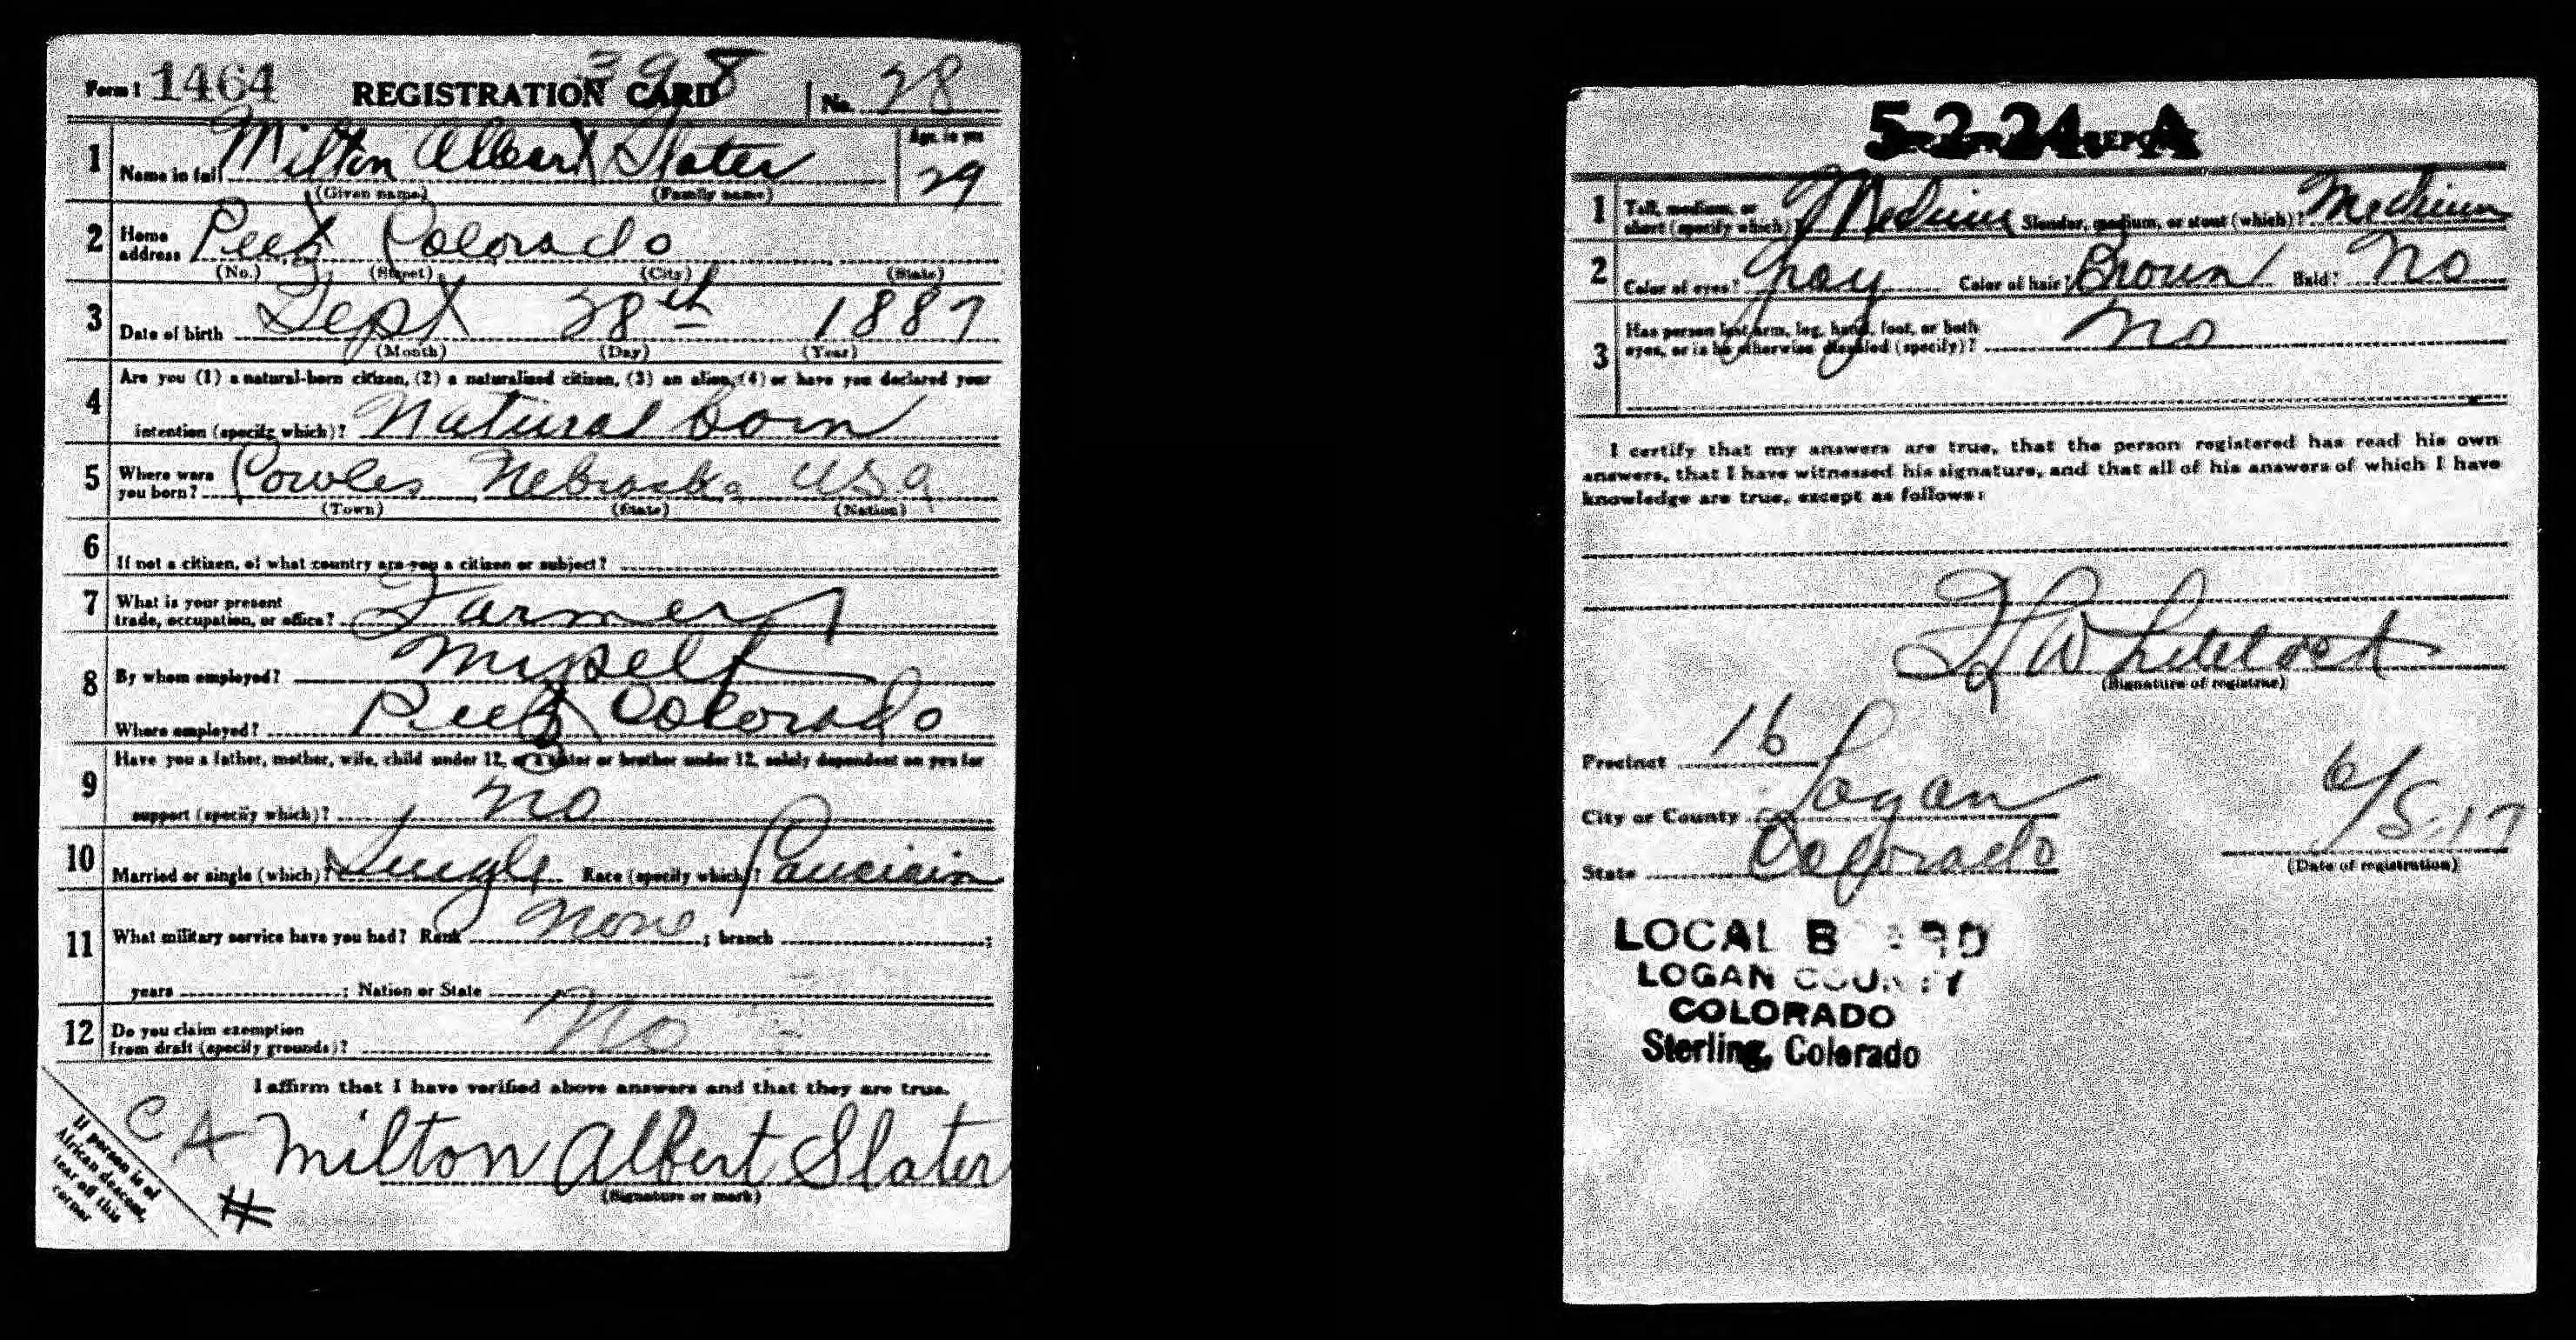 Form 1 1464 REGISTRATION CARD 398 No. 28
1 Name in full Milton Albert Slater Age, in yrs 29
(Given name) (Family name)
2 Home address Peetz Colorado
(No.) (Street) (City) (State)
3 Date of birth Sept 28th 1887
(Month) (Day) (Year)
4 Are you (1) a natural-born citizen, (2) a naturalized citizen, (3) an alien, (4) or have you declared your
intention (specify which)? Natural born
5 Where were you born? Cowles Nebraska USA
(Town) (State) (Nation)
6 If not a citizen, of what country are you a citizen or subject?
7 What is your present trade, occupation, or office? Farmer
8 By whom employed? Myself
Where employed? Peetz Colorado
9 Have you a father, mother, wife, child under 12, or a sister or brother under 12, solely dependent on you for
support (specify which)? No
10 Married or single (which)? Single Race (specify which)? Caucisin
11 What military service have you had? Rank None ; branch ;
years ; Nation or State
12 Do you claim exemption from draft (specify grounds)? No
I affirm that I have verified above answers and that they are true.
C A Milton Albert Slater
(Signature or mark)
If person is of
African descent,
tear off this
corner
#
5-2-24 A
1 Tall, medium, or short (specify which)? Medium Slender, medium, or stout (which)? Medium
2 Color of eyes? Gray Color of hair? Brown Bald? No
3 Has person lost arm, leg, hand, foot, or both
eyes, or is he otherwise disabled (specify)? No
I certify that my answers are true, that the person registered has read his own
answers, that I have witnessed his signature, and that all of his answers of which I have
knowledge are true, except as follows:
(Signature of registrar)
Precinct 16
City or County Logan
State Colorado
6/5-17
(Date of registration)
LOCAL BOARD
LOGAN COUNTY
COLORADO
Sterling, Colorado